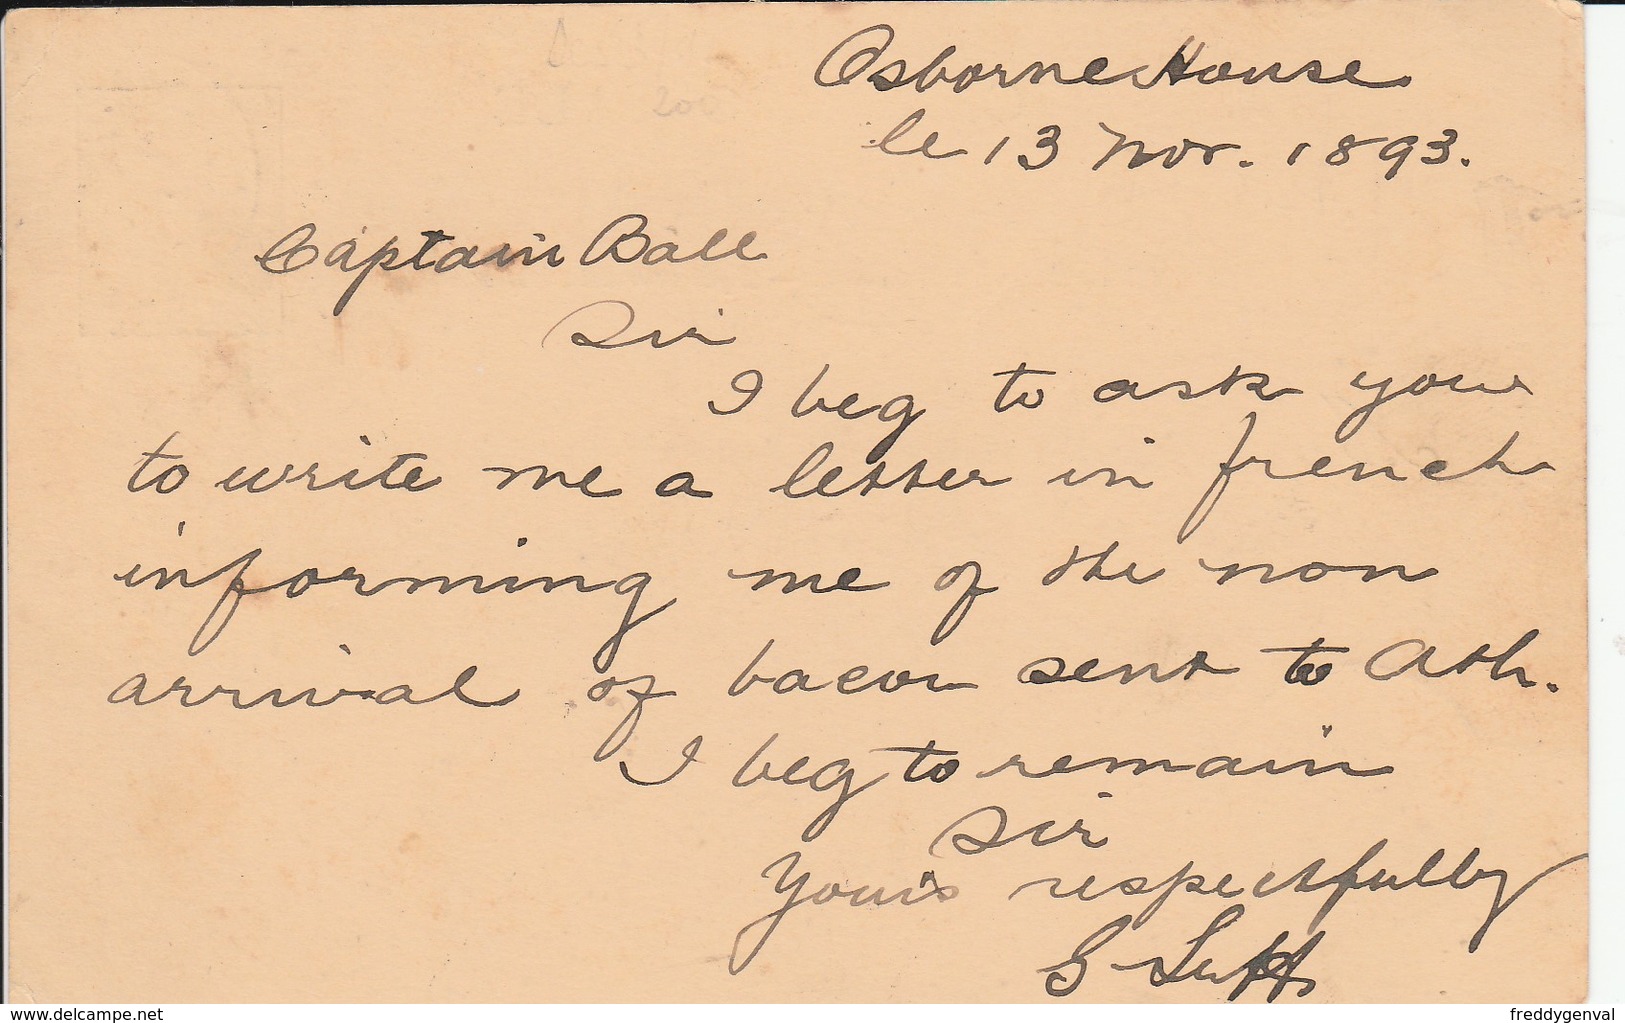 Osborne House
le 13 Nov. 1893.
Captain Ball
Sir
I beg to ask you
to write me a letter in french
informing me of the non
arrival of bacon sent to Ath.
I beg to remain
Sir
Yours respectfully
G
www.delcampe.net
freddygenval